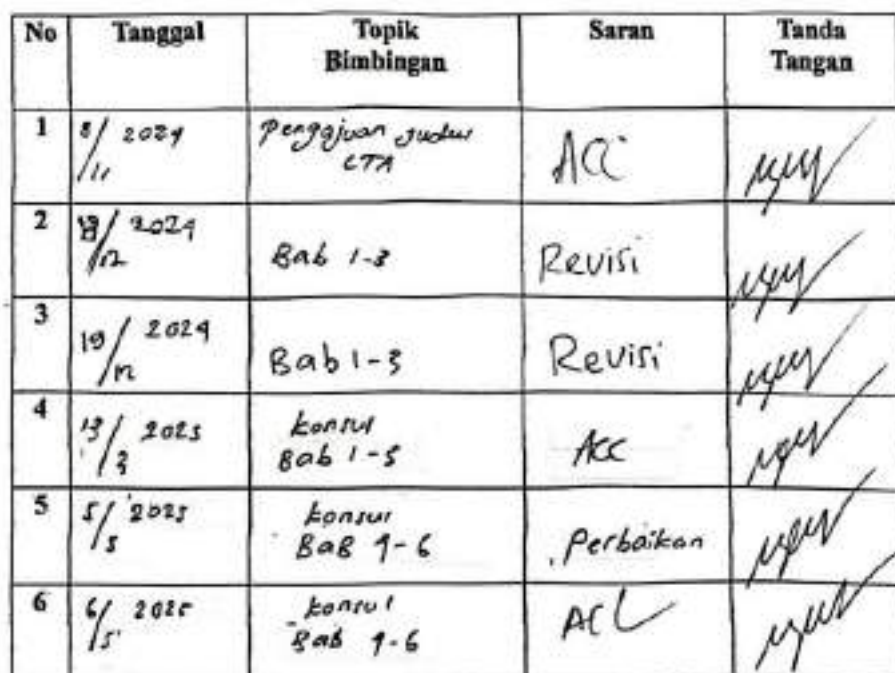 No Tanggal Topik Bimbingan Saran Tanda Tangan
1 8/11 2024 Pengajuan Judul LTA ACC
2 /12 2024 Bab 1-3 Revisi
3 19/12 2024 Bab 1-3 Revisi
4 13/3 2025 konsul Bab 1-5 Acc
5 5/5 2025 konsul BaB 4-6 Perbaikan
6 6/5 2025 konsul Bab 4-6 ACC